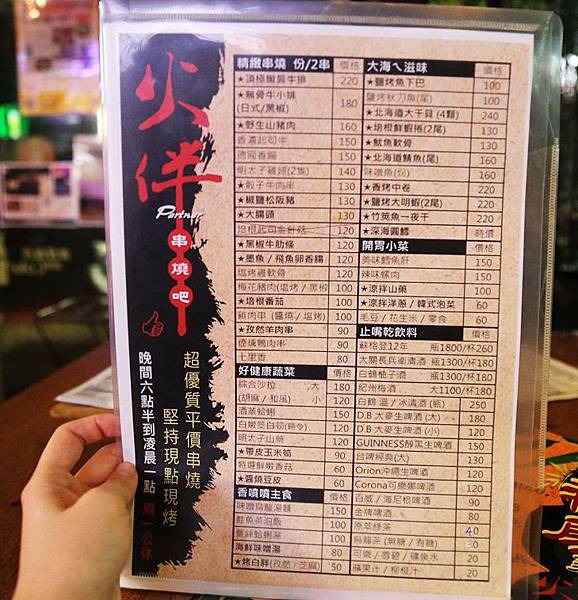 火伴
Partner
串燒吧
超優質平價串燒
堅持現點現烤
晚間六點半到凌晨一點 周一公休
精緻串燒 份/2串 價格
★頂極嫩肩牛排 220
★無骨牛小排
(日式/黑椒) 180
★野生山豬肉 160
香濃起司牛 150
德國香腸 150
明太子雞翅(2隻) 140
★骰子牛肉串 130
★椒鹽松阪豬 130
★大腸頭 130
培根起司金針菇 120
★黑椒牛肋條 120
★墨魚/飛魚卵香腸 120
塩烤雞軟骨 120
梅花豬肉(塩烤/黑椒) 100
★培根番茄 100
雞肉串(醬燒/塩烤) 100
★孜然羊肉串 90
煙燻鴨肉串 90
七里香 80
好健康蔬菜 價格
綜合沙拉 大 180
(胡麻/和風) 小 120
酒蒸蛤蜊 150
白嫩筊白筍(時令) 120
明太子山藥 120
★帶皮玉米筍 100
特選鮮嫩香菇 60
★醬燒豆皮 60
香噴噴主食 價格
味噌烏龍湯麵 150
鮭魚茶泡飯 100
薑絲蛤蜊湯 100
海鮮味噌湯 80
★烤白胖(孜然/芝麻) 50
大海ㄟ滋味 價格
★鹽烤魚下巴 100
鹽烤秋刀魚(尾) 100
★北海道大干貝(4顆) 240
★培根鮮蝦捲(2尾) 130
★魷魚軟骨 130
★北海道鯖魚(尾) 160
味噌魚(份) 160
★香烤中卷 220
★鹽烤大明蝦(2尾) 220
★竹莢魚一夜干 220
★深海圓鱈 時價
開胃小菜 價格
美味鱈魚肝 150
辣味螺肉 150
★涼拌山藥 100
★涼拌洋蔥/韓式泡菜 60
毛豆/花生米/零食 60
止嘴乾飲料 價格
蘇格登12年 瓶1800/杯260
大關長兵衛清酒 瓶1300/杯180
白鶴柚子酒 瓶1300/杯180
紀州梅酒 大1100/杯180
白鶴 溫/冰清酒(瓶) 250
D.B 大麥生啤酒(大) 180
D.B 大麥生啤酒(小) 120
GUINNESS醇黑生啤酒 120
台啤經典(大) 130
Orion沖繩生啤酒 120
Corona可樂娜啤酒 120
百威/海尼根啤酒 90
金牌啤酒 80
原萃綠茶 40
烏龍茶(無糖/有糖) 30
可樂/雪碧/礦泉水 20
蘋果汁/柳橙汁 20